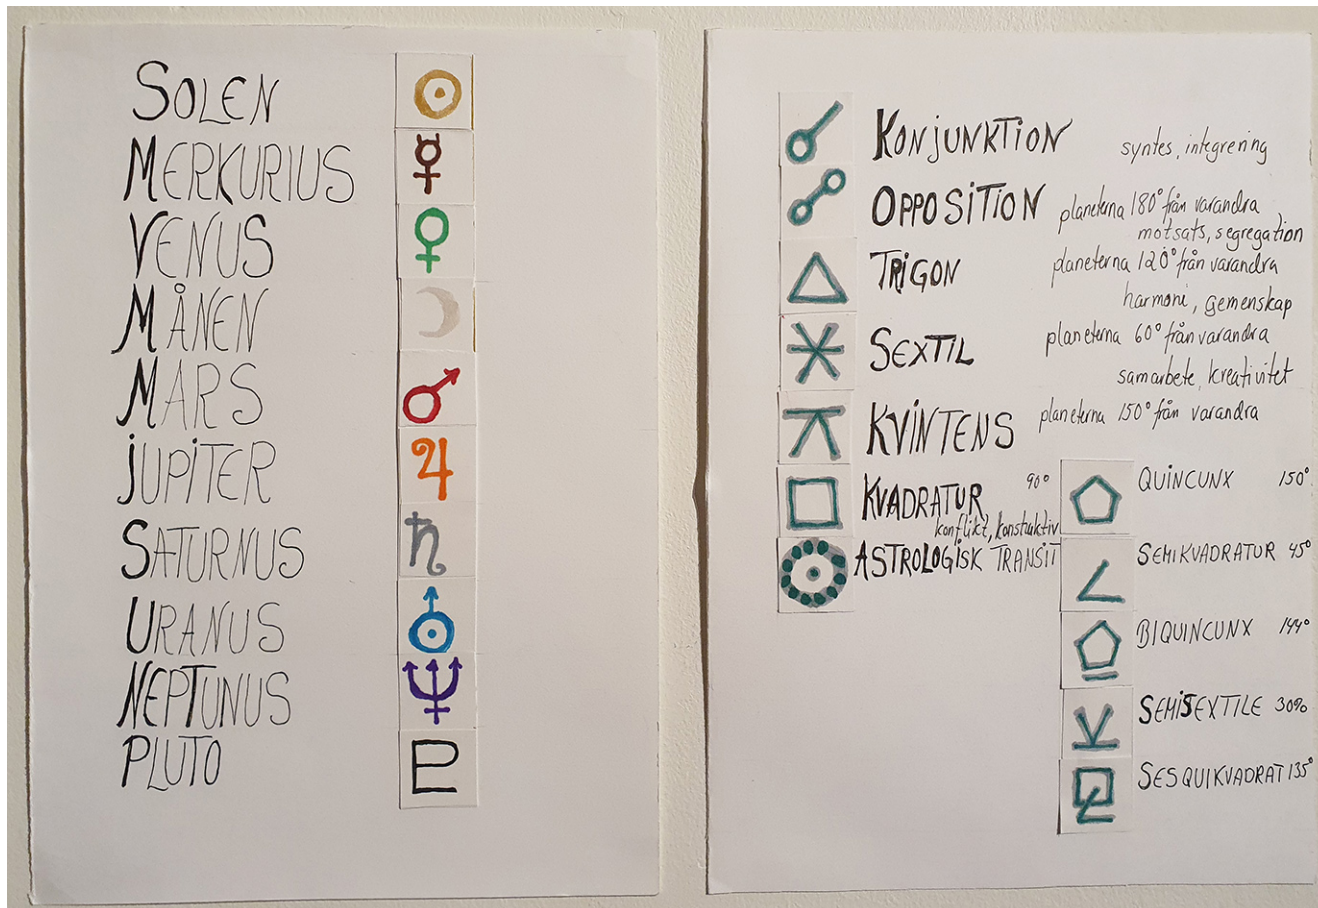 SOLEN
MERKURIUS
VENUS
MÅNEN
MARS
JUPITER
SATURNUS
URANUS
NEPTUNUS
PLUTO
KONJUNKTION syntes, integrering
OPPOSITION planeterna 180° från varandra
motsats, segregation
TRIGON planeterna 120° från varandra
harmoni, gemenskap
SEXTIL planeterna 60° från varandra
samarbete, kreativitet
KVINTENS planeterna 150° från varandra
KVADRATUR 90°
konflikt, konstruktiv
ASTROLOGISK TRANSIT
QUINCUNX 150°
SEMIKVADRATUR 45°
BIQUINCUNX 144°
SEMISEXTILE 30%
SESQUIKVADRAT 135°